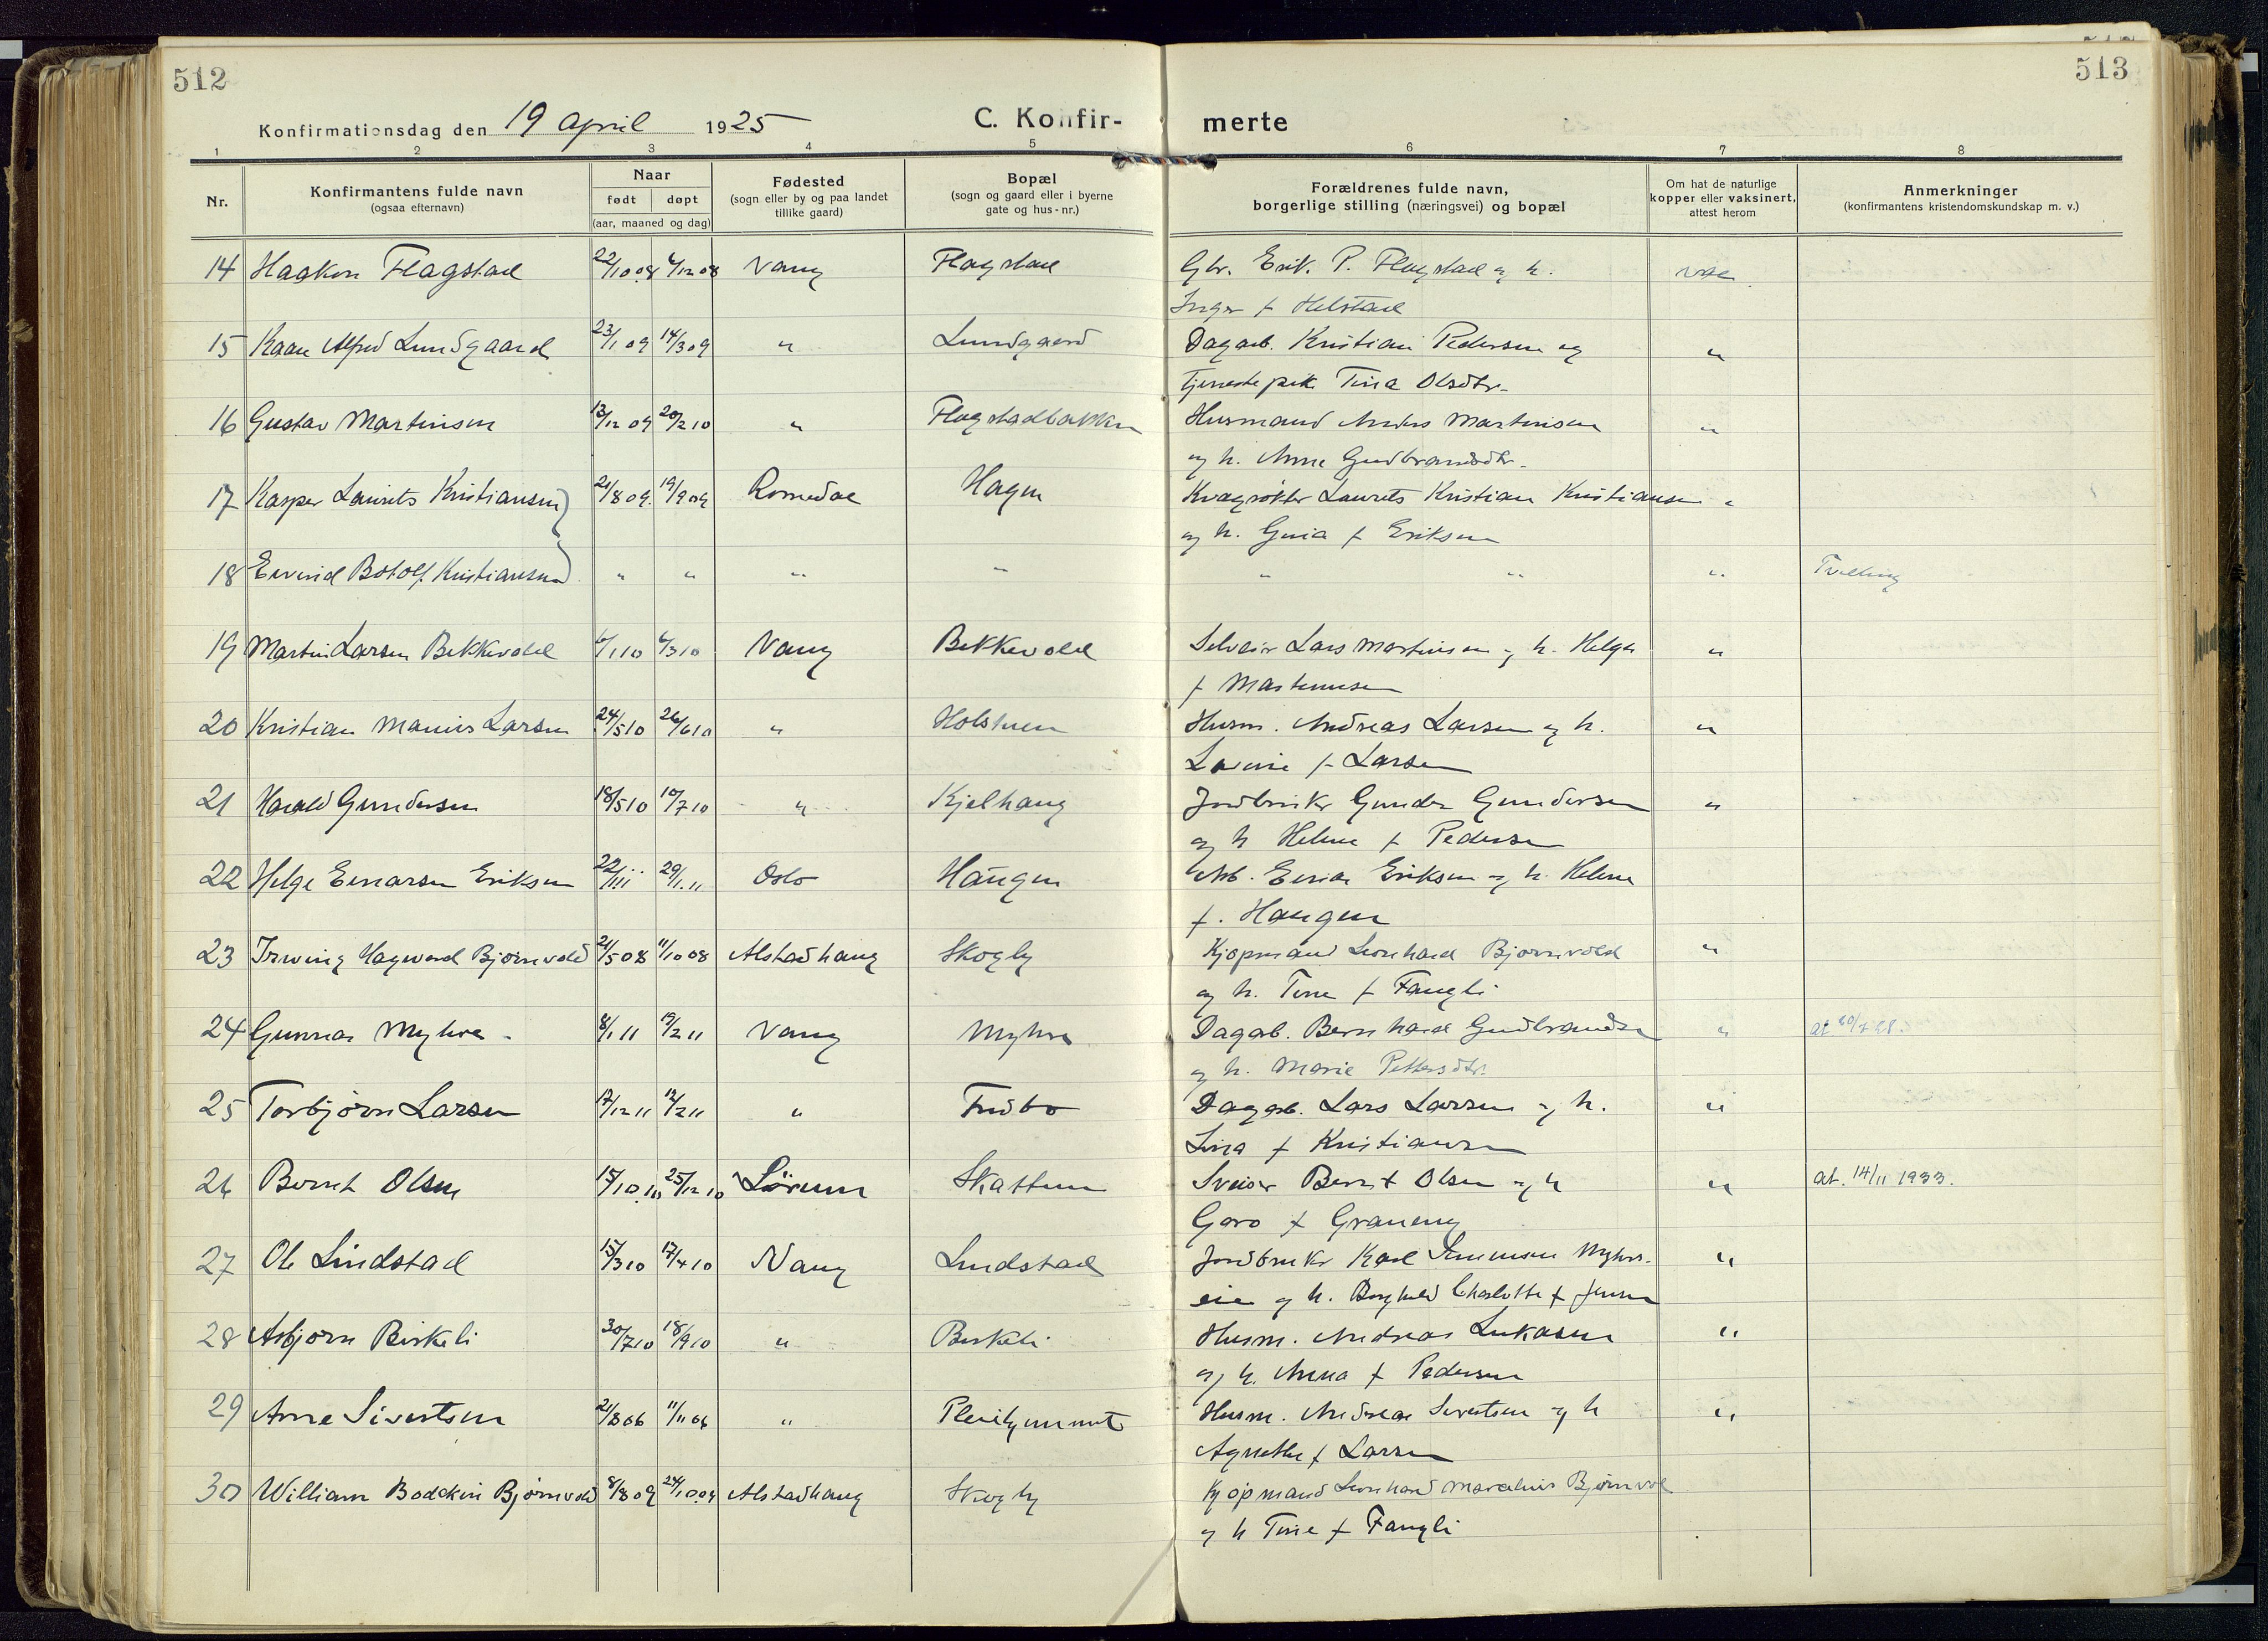 512
513
Konfirmationsdag den 19 april 1925 C. Konfir- merte
1 2 3 4 5 6 7 8
Nr. Konfirmantens fulde navn (ogsaa efternavn) Naar født døpt (aar, maaned og dag) Fødested (sogn eller by og paa landet tillike gaard) Bopæl (sogn og gaard eller i byerne gate og hus-nr.) Forældrenes fulde navn, borgerlige stilling (næringsvei) og bopæl Om hat de naturlige kopper eller vaksinert, attest herom Anmerkninger (konfirmantens kristendomskundskap m. v.)
14 Haakon Flagstad 22/10 08 6/12 08 Vang Flagstad Gbr. Erik P. Flagstad og h. vac.
Inger f Helstad
15 Kaare Alfred Lundgaard 23/1 09 14/3 09 " Lundgaard Dagarb. Kristian Pedersen og "
tjenestepike Tina Olsdtr.
16 Gustav Martinsen 13/12 09 20/2 10 " Flagstadbakken Husmand Anders Martinsen "
og h. Anne Gudbrandsdtr.
17 Kasper Laurits Kristiansen 21/8 09. 19/9 09 Romedal Hagen Kvægrøkter Laurits Kristian Kristiansen "
og h. Guia f Eriksen
18 Eivind Botolf Kristiansen " " " " " " " Tvilling
19 Martin Larsen Bekkevold 6/1 10 6/3 10 Vang Bekkevold Selveier Lars Martinsen og h. Helga "
f Martinusen
20 Kristian Marius Larsen 24/5 10 26/6 10 " Holstuen Husm. Andreas Larsen og h. "
Lovine f Larsen
21 Harald Gundersen 18/5 10 10/7 10 " Kjelhaug Jordbruker Gunder Gundersen "
og h Helene f Pedersen
22 Helge Einarsen Eriksen 22/1 11 29/1 11 Oslo Haugen Arb. Einar Eriksen og h. Helene
f. Haugen
23 Irwing Hagward Bjørnvold 21/5 08 11/10 08 Alstadhaug Skogly Kjøpmand Leonhard Bjørnvold "
og h. Tine f Fangli
24 Gunnar Myhre 8/1 11 19/2 11 Vang Myhre Dagarb. Bernhard Gudbrandsen "
og h. Marie Pettersdtr.
25 Torbjørn Larsen 17/12 11 12/2 11 " Fredbo Dagarb. Lars Larsen og h. "
Lina f Kristiansen
26 Bernt Olsen 15/10 10 25/12 10 Sørum Skattum Sveiser Bernt Olsen og h "
Goro f Graneng
27 Ole Lindstad 15/3 10 17/4 10 Vang Lindstad Jordbruker Karl Simensen Myhrs- "
eie og h. Borghild Charlotte f Jensen
28 Asbjørn Birkeli 30/7 10 18/9 10 " Birkeli Husm. Andreas Lukasen "
og h. Anna f Pedersen
29 Arne Sivertsen 21/8 06 11/11 06 " Husm. Andreas Sivertsen og h "
Agnethe f Larsen
30 William Bodckin Bjørnvold 8/8 09 24/10 09 Alstadhaug Skogly Kjøpmand Leonhard Bjørnvol
og h Tine f Fangli
at. 14/11 1933.